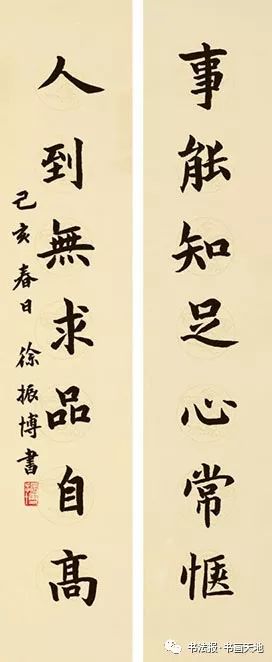 事能知足心常愜
人到無求品自髙
己亥春日 徐振博書
书法报·书画天地